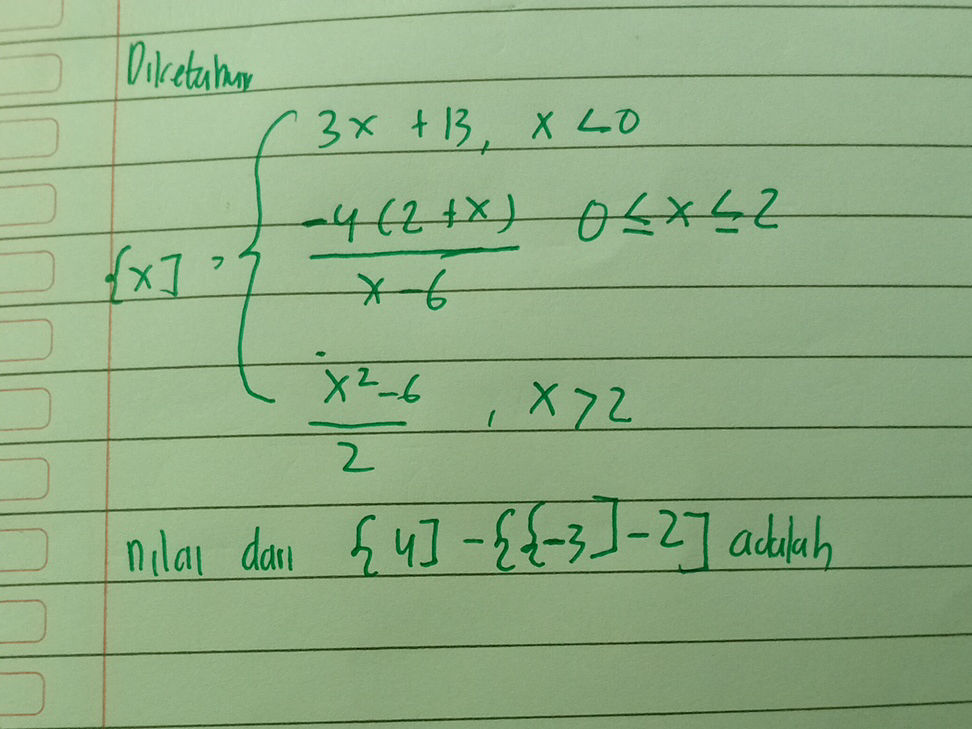 Diketahui
{x] = { 3x + 13, x < 0
-4(2+x) / x-6 0 ≤ x ≤ 2
x² - 6 / 2 , x > 2
nilai dari {4] - {{-3] - 2] adalah